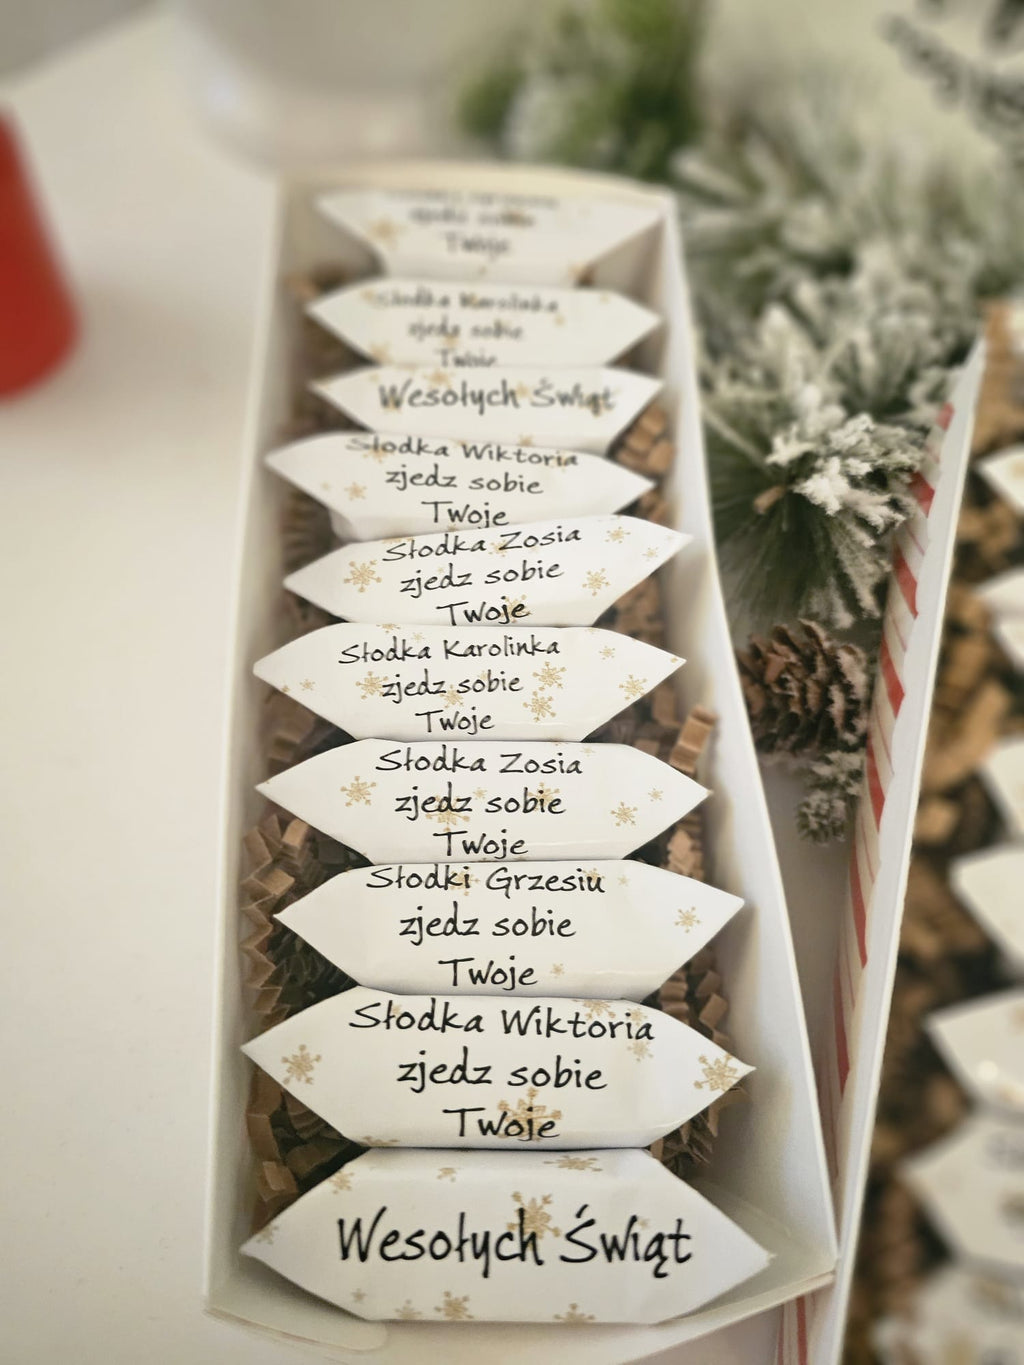 zjedz sobie
Twoje
Słodka Karolinka
zjedz sobie
Twoje
Wesołych Świąt
Słodka Wiktoria
zjedz sobie
Twoje
Słodka Zosia
zjedz sobie
Twoje
Słodka Karolinka
zjedz sobie
Twoje
Słodka Zosia
zjedz sobie
Twoje
Słodki Grzesiu
zjedz sobie
Twoje
Słodka Wiktoria
zjedz sobie
Twoje
Wesołych Świąt